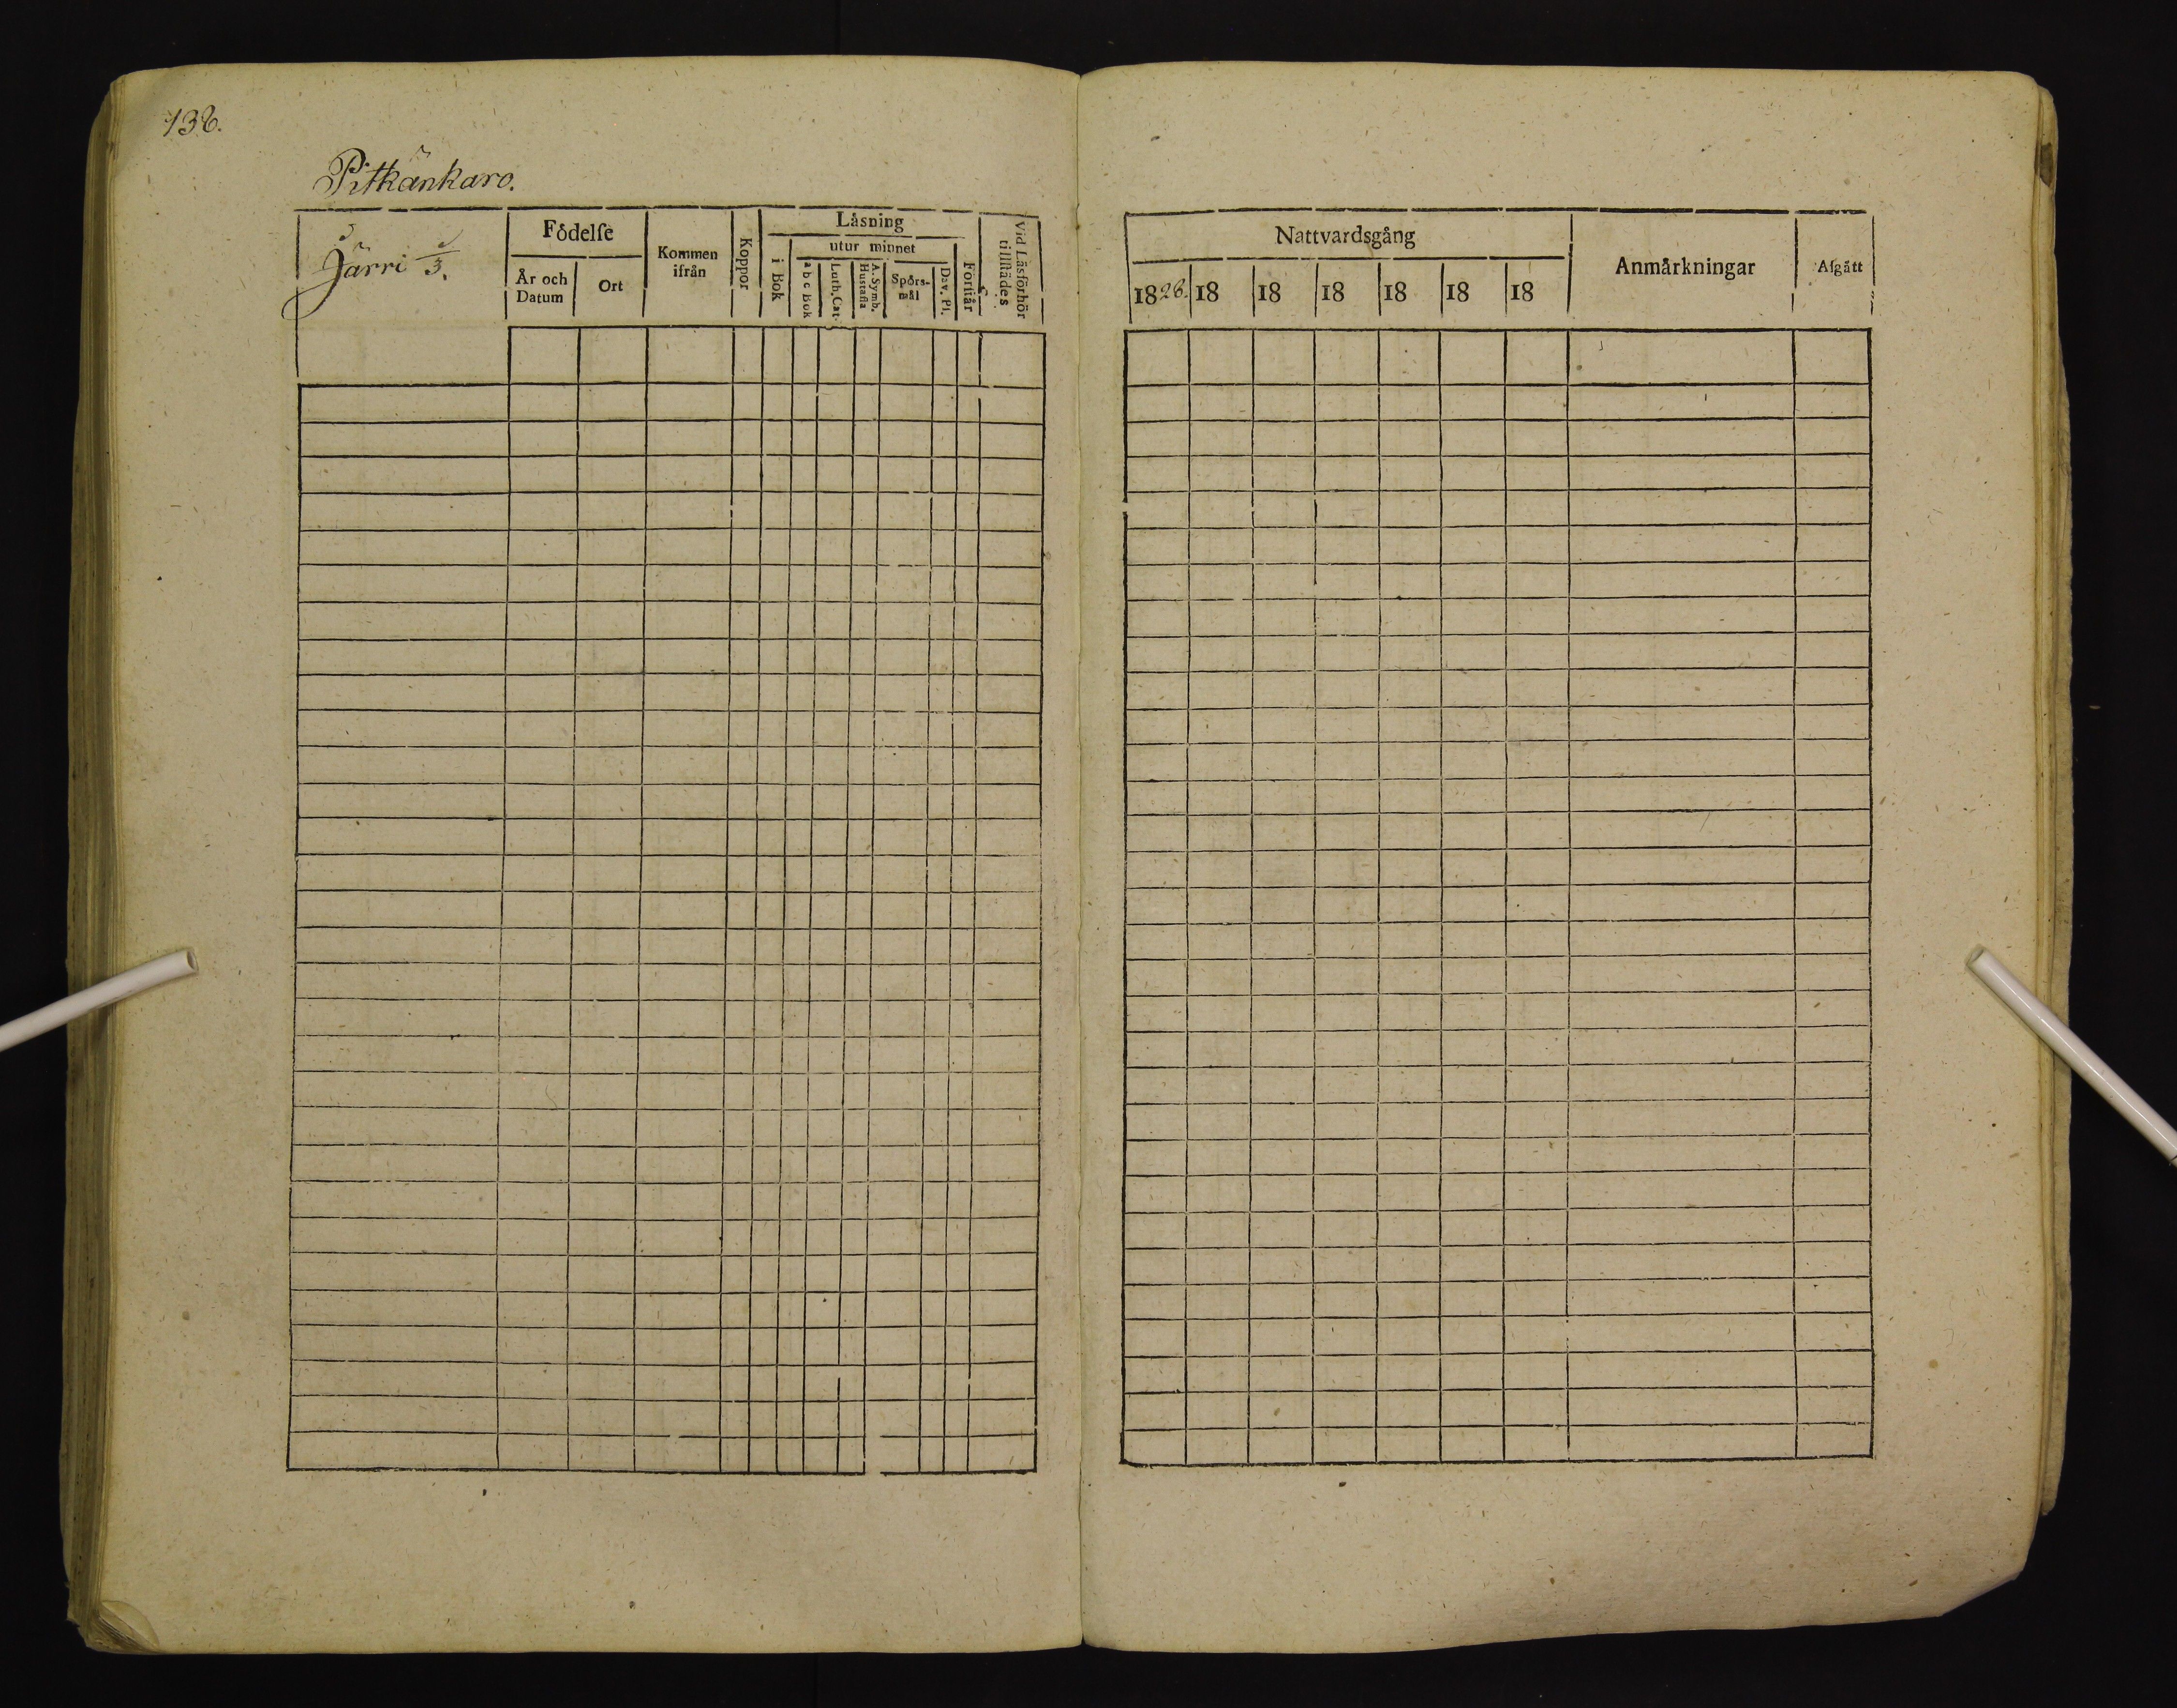 138.
Pitkänkaro.
Järri 1/3.
Födelſe
År och Datum
Ort
Kommen ifrån
Koppor
Låsning
i Bok
utur minnet
a b c Bok
Luth. Cat.
A. Symb. Huſtafla
Spörs-mål
Dav. Pſ.
Förſtår
Vid Läsförhör tillſtädes
Nattvardsgång
1828.
18
18
18
18
18
18
Anmärkningar
Afgått